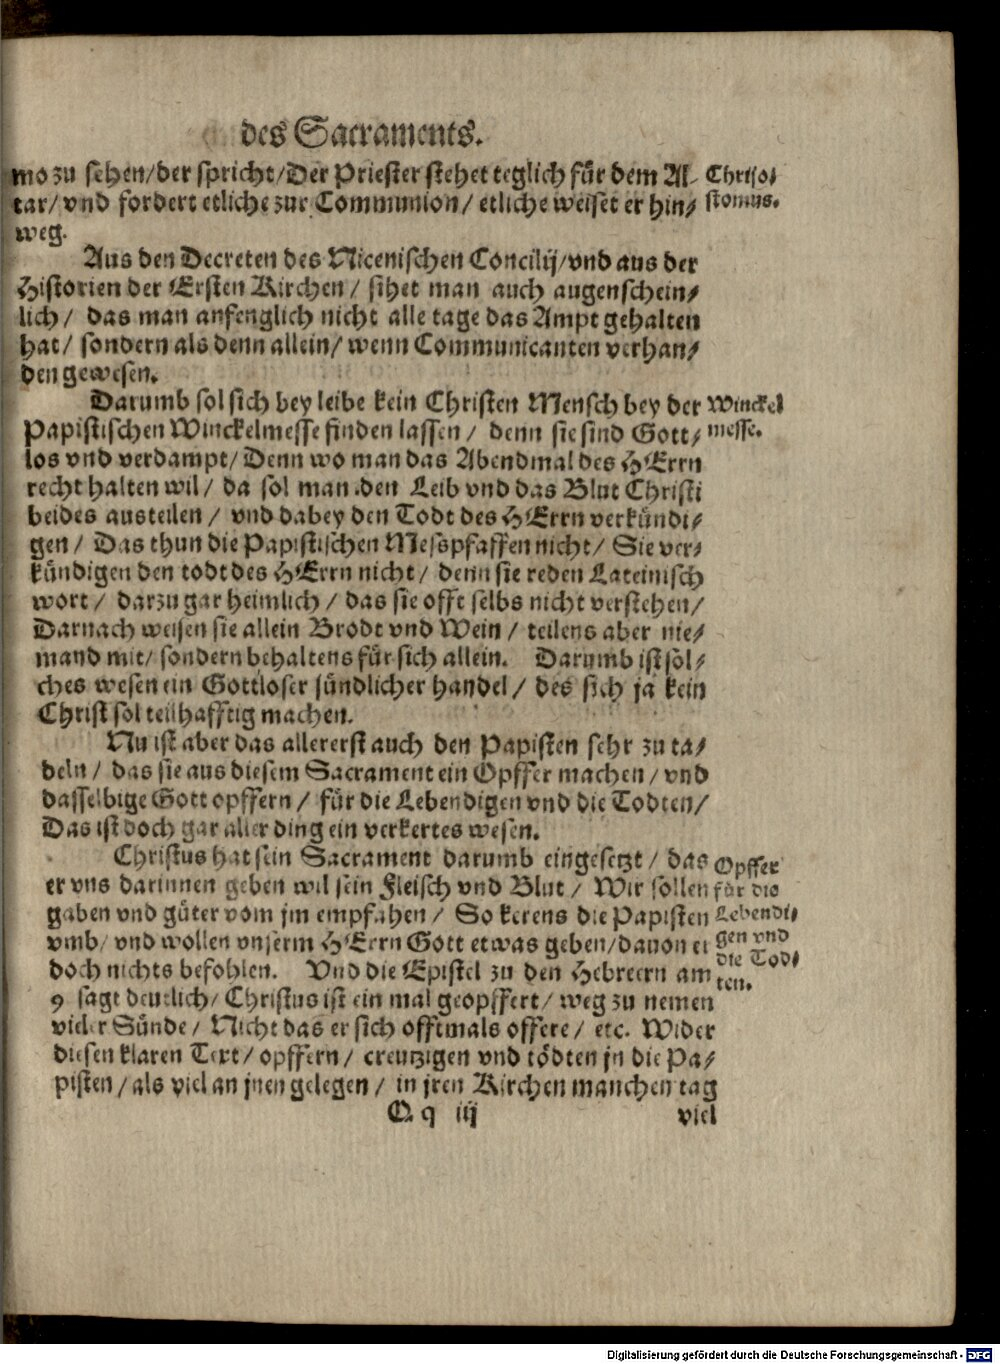 des Sacraments.
mo zu sehen/der spricht/Der Priester stehet teglich für dem Al- Chriso/
tar/ vnd fordert etliche zur Communion/ etliche weiset er hin/ stomus.
weg.
Aus den Decreten des Nicenischen Concilij/vnd aus der
Historien der Ersten Kirchen/ sihet man auch augenschein/
lich/ das man anfenglich nicht alle tage das Ampt gehalten
hat/ sondern als denn allein/ wenn Communicanten verhan/
den gewesen.
Darumb sol sich bey leibe kein Christen Mensch bey der Winckel
Papistischen Winckelmesse finden lassen/ denn sie sind Gott/ messe.
los vnd verdampt/ Denn wo man das Abendmal des HErrn
recht halten wil/ da sol man den Leib vnd das Blut Christi
beides austeilen/ vnd dabey den Todt des HErrn verkündi/
gen/ Das thun die Papistischen Messpfaffen nicht/ Sie ver/
kündigen den todt des HErrn nicht/ denn sie reden Lateinisch
wort/ darzu gar heimlich/ das sie offt selbs nicht verstehen/
Darnach weisen sie allein Brodt vnd Wein/ teilens aber nie/
mand mit/ sondern behaltens für sich allein. Darumb ist sol/
ches wesen ein Gottloser sündlicher handel/ des sich ja kein
Christ sol teilhafftig machen.
Nu ist aber das allererst auch den Papisten sehr zu ta/
deln/ das sie aus diesem Sacrament ein Opffer machen/ vnd
dasselbige Gott opffern/ für die Lebendigen vnd die Todten/
Das ist doch gar aller ding ein verkertes wesen.
Christus hat sein Sacrament darumb eingesetzt/ das Opffer
er vns darinnen geben wil sein Fleisch vnd Blut/ Wir sollen für die
gaben vnd güter vom jm empfahen/ So kerens die Papisten Lebendi/
vmb/ vnd wollen vnserm HErrn Gott etwas geben/dauon er gen vnd
doch nichts befohlen. Vnd die Epistel zu den Hebreern am die Tod/
9 sagt deutlich/ Christus ist ein mal geopffert/ weg zu nemen ten.
vieler Sünde/ Nicht das er sich offtmals offere/ etc. Wider
diesen klaren Text/ opffern/ creutzigen vnd tödten jn die Pa/
pisten/als viel an jnen gelegen/ in jren Kirchen manchen tag
Q q iij viel
Digitalisierung gefördert durch die Deutsche Forschungsgemeinschaft - DFG